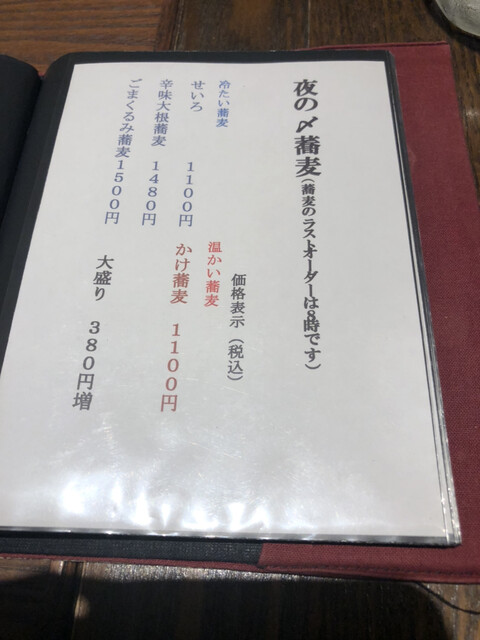 夜の〆蕎麦(蕎麦のラストオーダーは8時です)
価格表示(税込)
冷たい蕎麦
せいろ 1100円
辛味大根蕎麦 1480円
ごまくるみ蕎麦1500円
温かい蕎麦
かけ蕎麦 1100円
大盛り 380円増